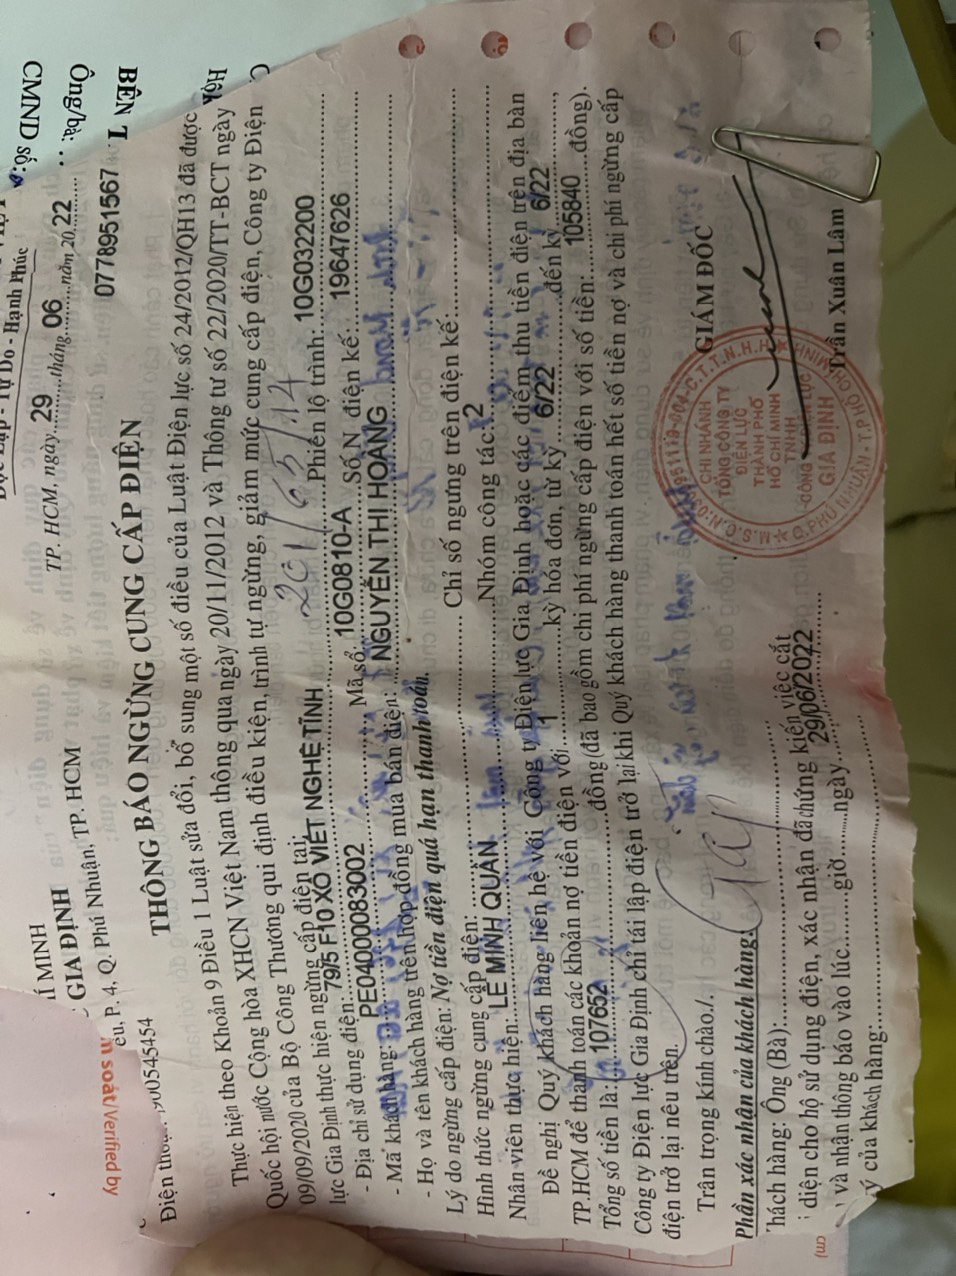 Độc Lập - Tự Do - Hạnh Phúc
TP. HCM, ngày 29 tháng 06 năm 20 22
CMND số:
Ông/bà:
BÊN
Í MINH
GIA ĐỊNH
ệu, P. 4, Q. Phú Nhuận, TP. HCM
0778951567
soát/Verified by
THÔNG BÁO NGỪNG CUNG CẤP ĐIỆN
Điện 1900545454
Thực hiện theo Khoản 9 Điều 1 Luật sửa đổi, bổ sung một số điều của Luật Điện lực số 24/2012/QH13 đã được
Quốc hội nước Cộng hòa XHCN Việt Nam thông qua ngày 20/11/2012 và Thông tư số 22/2020/TT-BCT ngày
09/09/2020 của Bộ Công Thương qui định điều kiện, trình tự ngừng, giảm mức cung cấp điện, Công ty Điện
lực Gia Định thực hiện ngừng cấp điện tại:
- Địa chỉ sử dụng điện: 79/5 F10 XÔ VIẾT NGHỆ TĨNH Phiên lộ trình: 10G032200
- Mã khách hàng: PE04000083002 Mã số 10G0810-A Số N điện kế 19647626
- Họ và tên khách hàng trên hợp đồng mua bán điện: NGUYỄN THỊ HOÀNG
Lý do ngừng cấp điện: Nợ tiền điện quá hạn thanh toán.
Hình thức ngừng cung cấp điện: Chỉ số ngưng trên điện kế
Nhân viên thực hiện LÊ MINH QUÂN Nhóm công tác 2
Đề nghị Quý khách hàng liên hệ với Công ty Điện lực Gia Định hoặc các điểm thu tiền điện trên địa bàn
TP.HCM để thanh toán các khoản nợ tiền điện với 1 kỳ hóa đơn, từ kỳ 6/22 đến kỳ 6/22,
Tổng số tiền là: 107652 đồng (đã bao gồm chi phí ngừng cấp điện với số tiền: 105840 đồng).
Công ty Điện lực Gia Định chỉ tái lập điện trở lại khi Quý khách hàng thanh toán hết số tiền nợ và chi phí ngừng cấp
điện trở lại nêu trên.
Trân trọng kính chào./.
GIÁM ĐỐC
CHI NHÁNH
TỔNG CÔNG TY
ĐIỆN LỰC
THÀNH PHỐ
HỒ CHÍ MINH
TNHH
GIA ĐỊNH
Q. PHÚ NHUẬN - T.P HỒ CHÍ MINH
Trần Xuân Lâm
Phần xác nhận của khách hàng:
hách hàng: Ông (Bà):
điện cho hộ sử dụng điện, xác nhận đã chứng kiến việc cắt
và nhận thông báo vào lúc giờ ngày 29/06/2022
ý của khách hàng: